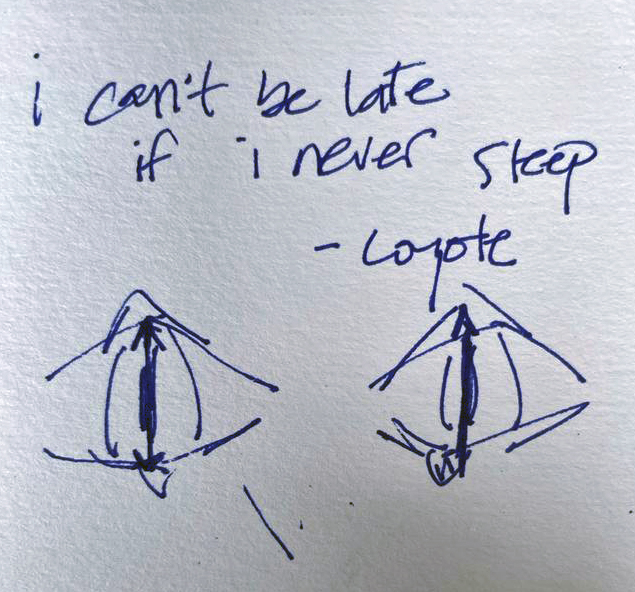 i can't be late
if i never sleep
- coyote